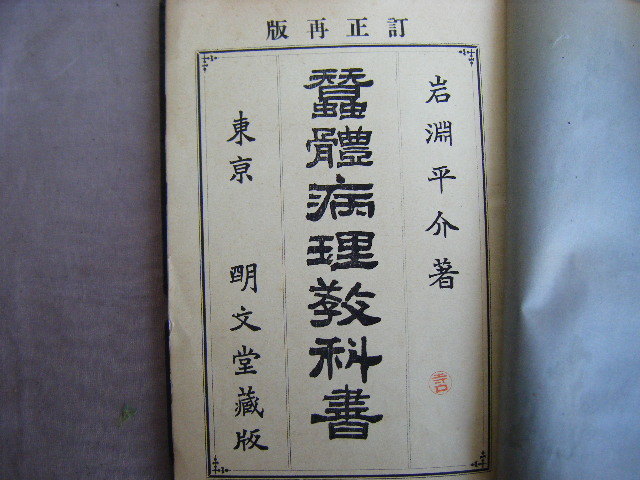 訂正再版
岩淵平介著
蠶體病理教科書
東京 明文堂藏版